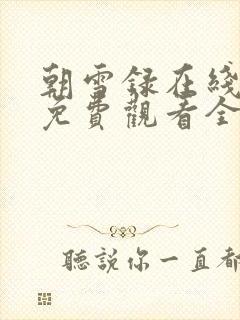 朝雪録在綫
免費觀看全
聽説你一直都